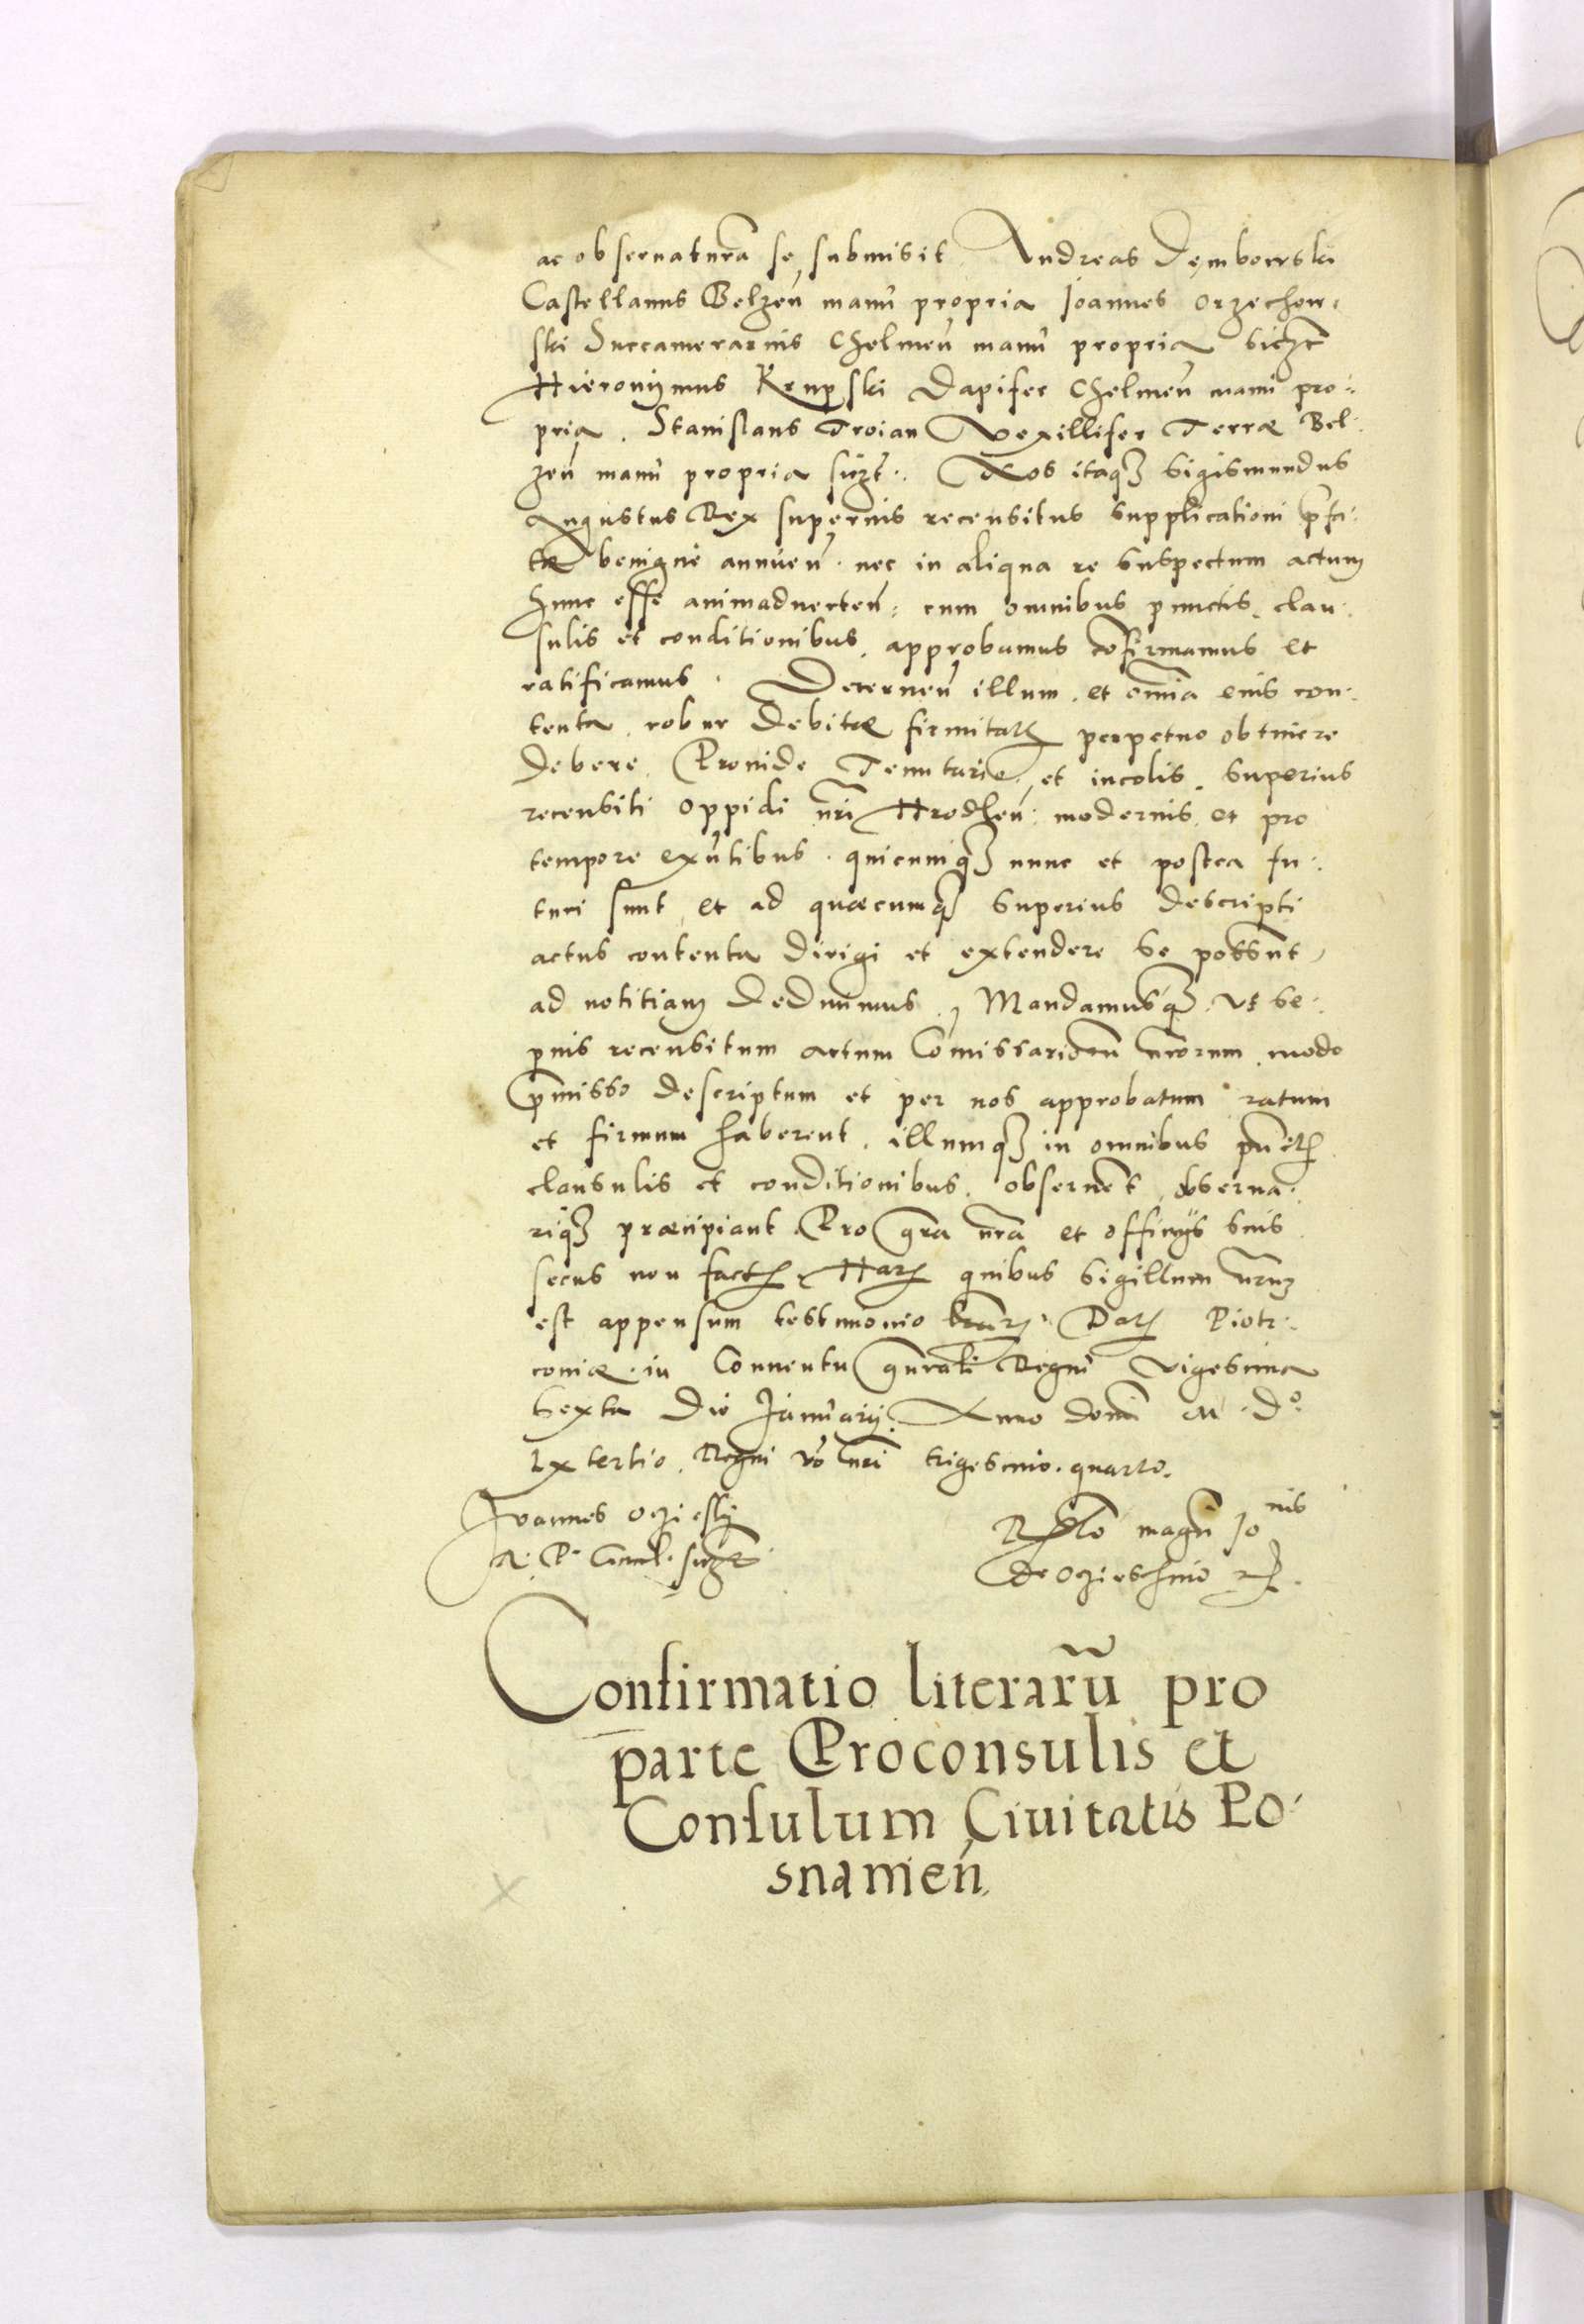 ac obseruaturã se submisit. Andreas Dembowski
Castellanus Belzeñ manu propria Joannes Orzechow-
ski Succamerarius Chelmeñ manu propria
Hieronymus Krupski Dapifer Chelmeñ manu pro-
pria. Stanislaus Troian Vexillifer Terræ Bel-
zeñ manu propria. Nos itaq3 Sigismundus
Augustus Rex superius recensitus supplicationi p̃fa-
tæ benignè annueñ. nec in aliqua re suspectum actum
hunc esse animaduerteñ: cum omnibus punctis. clau-
sulis et conditionibus. approbamus cõfirmamus et
ratificamus. Decerneñ illum. et omĩa eius con-
tenta. robur debitæ firmitatis perpetuo obtinere
debere. Prouide Tenutario, et incolis. superius
recensiti oppidi nr̃i Hrodleñ. modernis. et pro
tempore exñtibus. quicunq3 nunc et postea fu-
turi sunt, et ad quæcumq3 superius descripti
actus contenta dirigi et extendere se possunt,
ad notitiam deducimus. Mandamusq3. vt se-
perius recensitum actum Cõmissariorum nr̃orum. modo
p̃misso descriptum et per nos approbatum ratum
et firmum haberent. illumq3 in omnibus punctis
clausulis et conditionibus. obseruẽt obserua-
riq3 præcipiant. Pro gr̃a nr̃a et officijs suis
secus non factur. Harum quibus sigillum nr̃um
est appensum testimonio lr̃arum. Datum Piotr-
coniæ. in Conuentu gñrali Regni vigesima
sexta die Januarij. Anno domĩ M. D°.
Lx tertio. Regni vero nr̃i trigesimo. quarto.
Joannes Oczieski
R. P. Cancel.
Relatio magci Jonis
de Oczieschino
Confirmatio literarũ pro
parte Proconsulis et
Consulum Ciuitatis Po-
snanieñ.